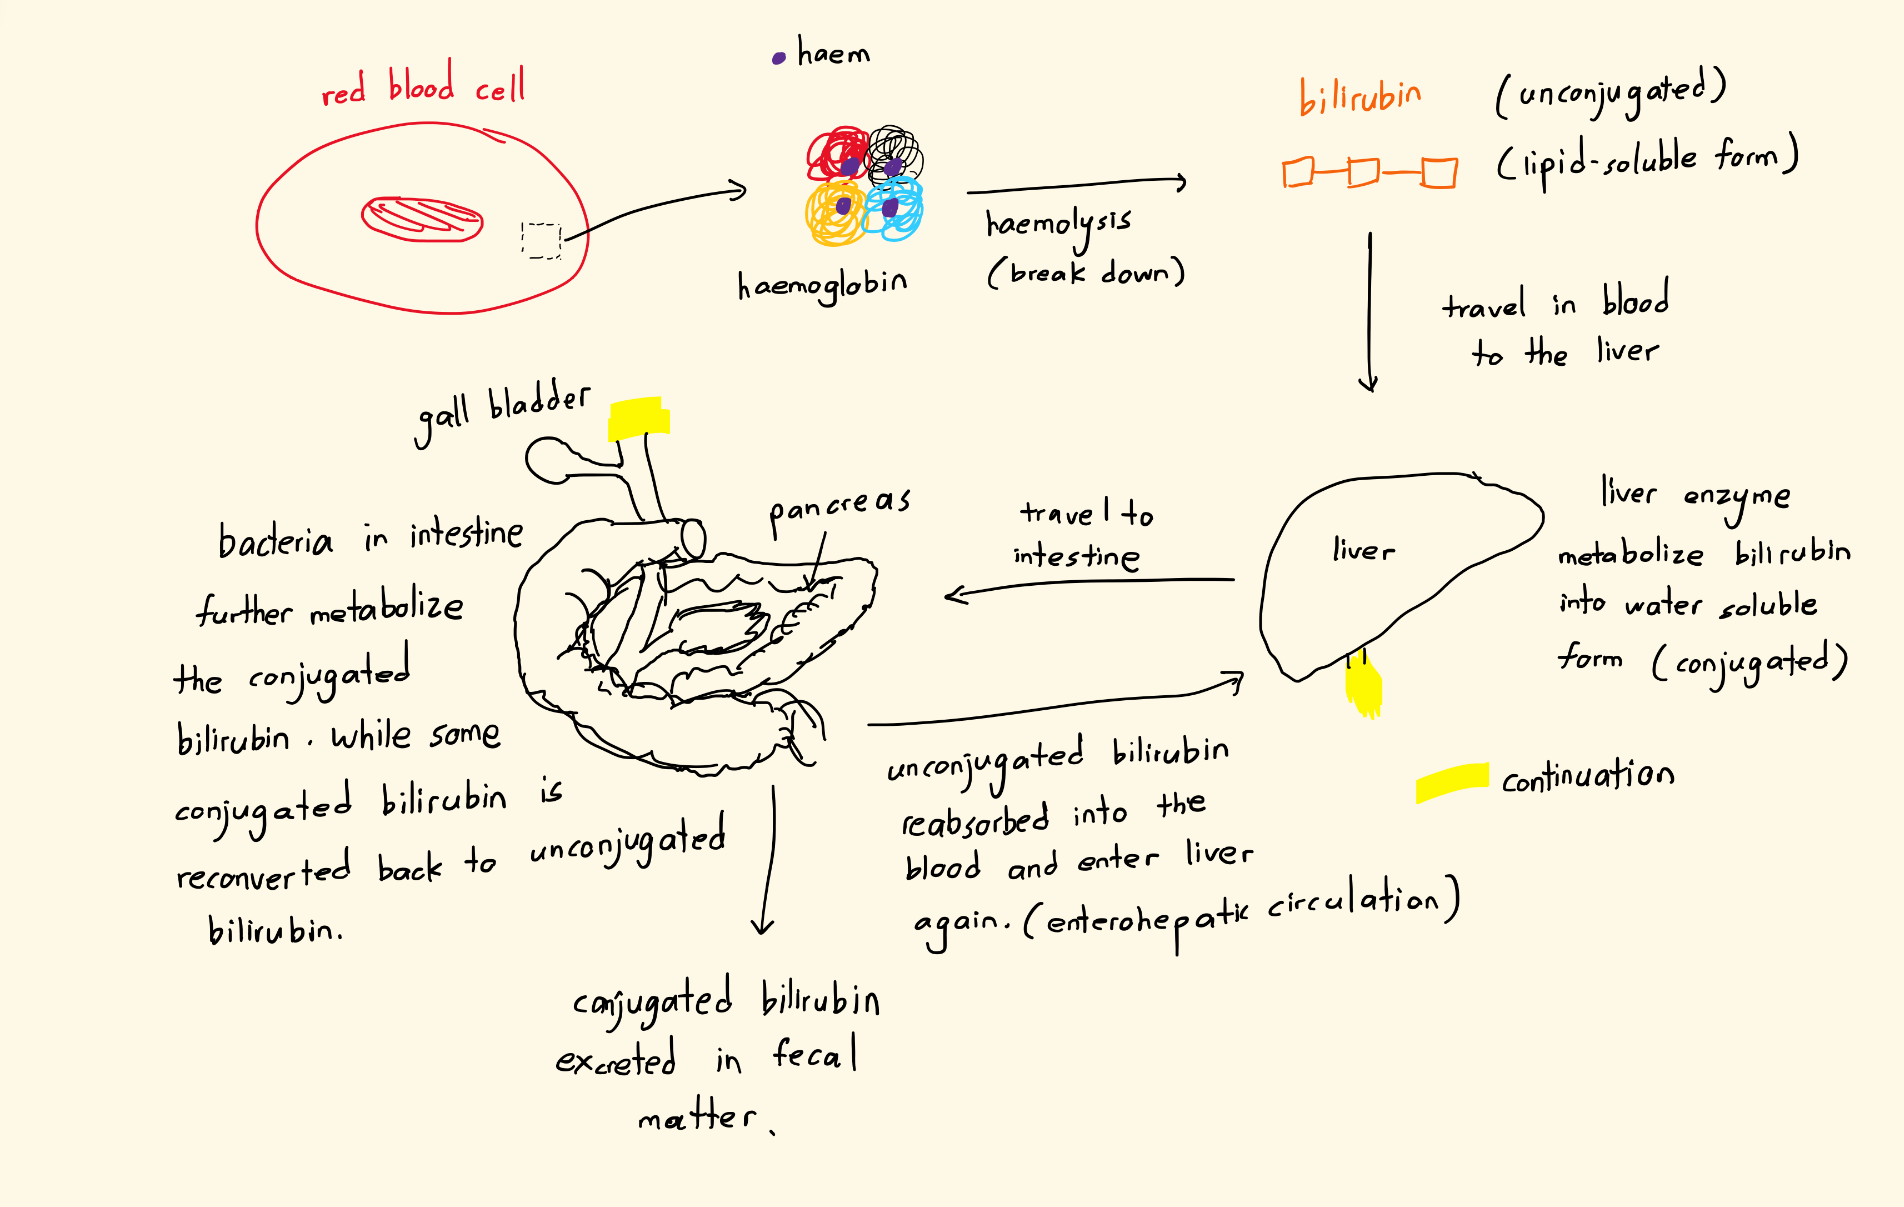 red blood cell
haem
haemoglobin
haemolysis
(break down)
bilirubin (unconjugated)
(lipid-soluble form)
travel in blood
to the liver
liver
liver enzyme
metabolize bilirubin
into water soluble
form (conjugated)
continuation
travel to
intestine
gall bladder
pancreas
bacteria in intestine
further metabolize
the conjugated
bilirubin. while some
conjugated bilirubin is
reconverted back to unconjugated
bilirubin.
unconjugated bilirubin
reabsorbed into the
blood and enter liver
again. (enterohepatic circulation)
conjugated bilirubin
excreted in fecal
matter.